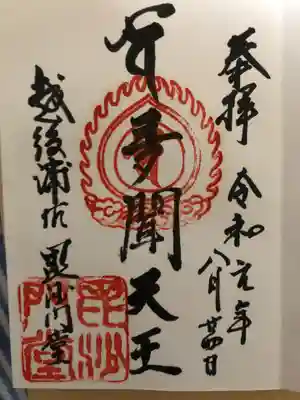 奉拝 令和元年八月廿四日
多聞天王
越後浦佐 毘沙門堂
毘沙
門堂